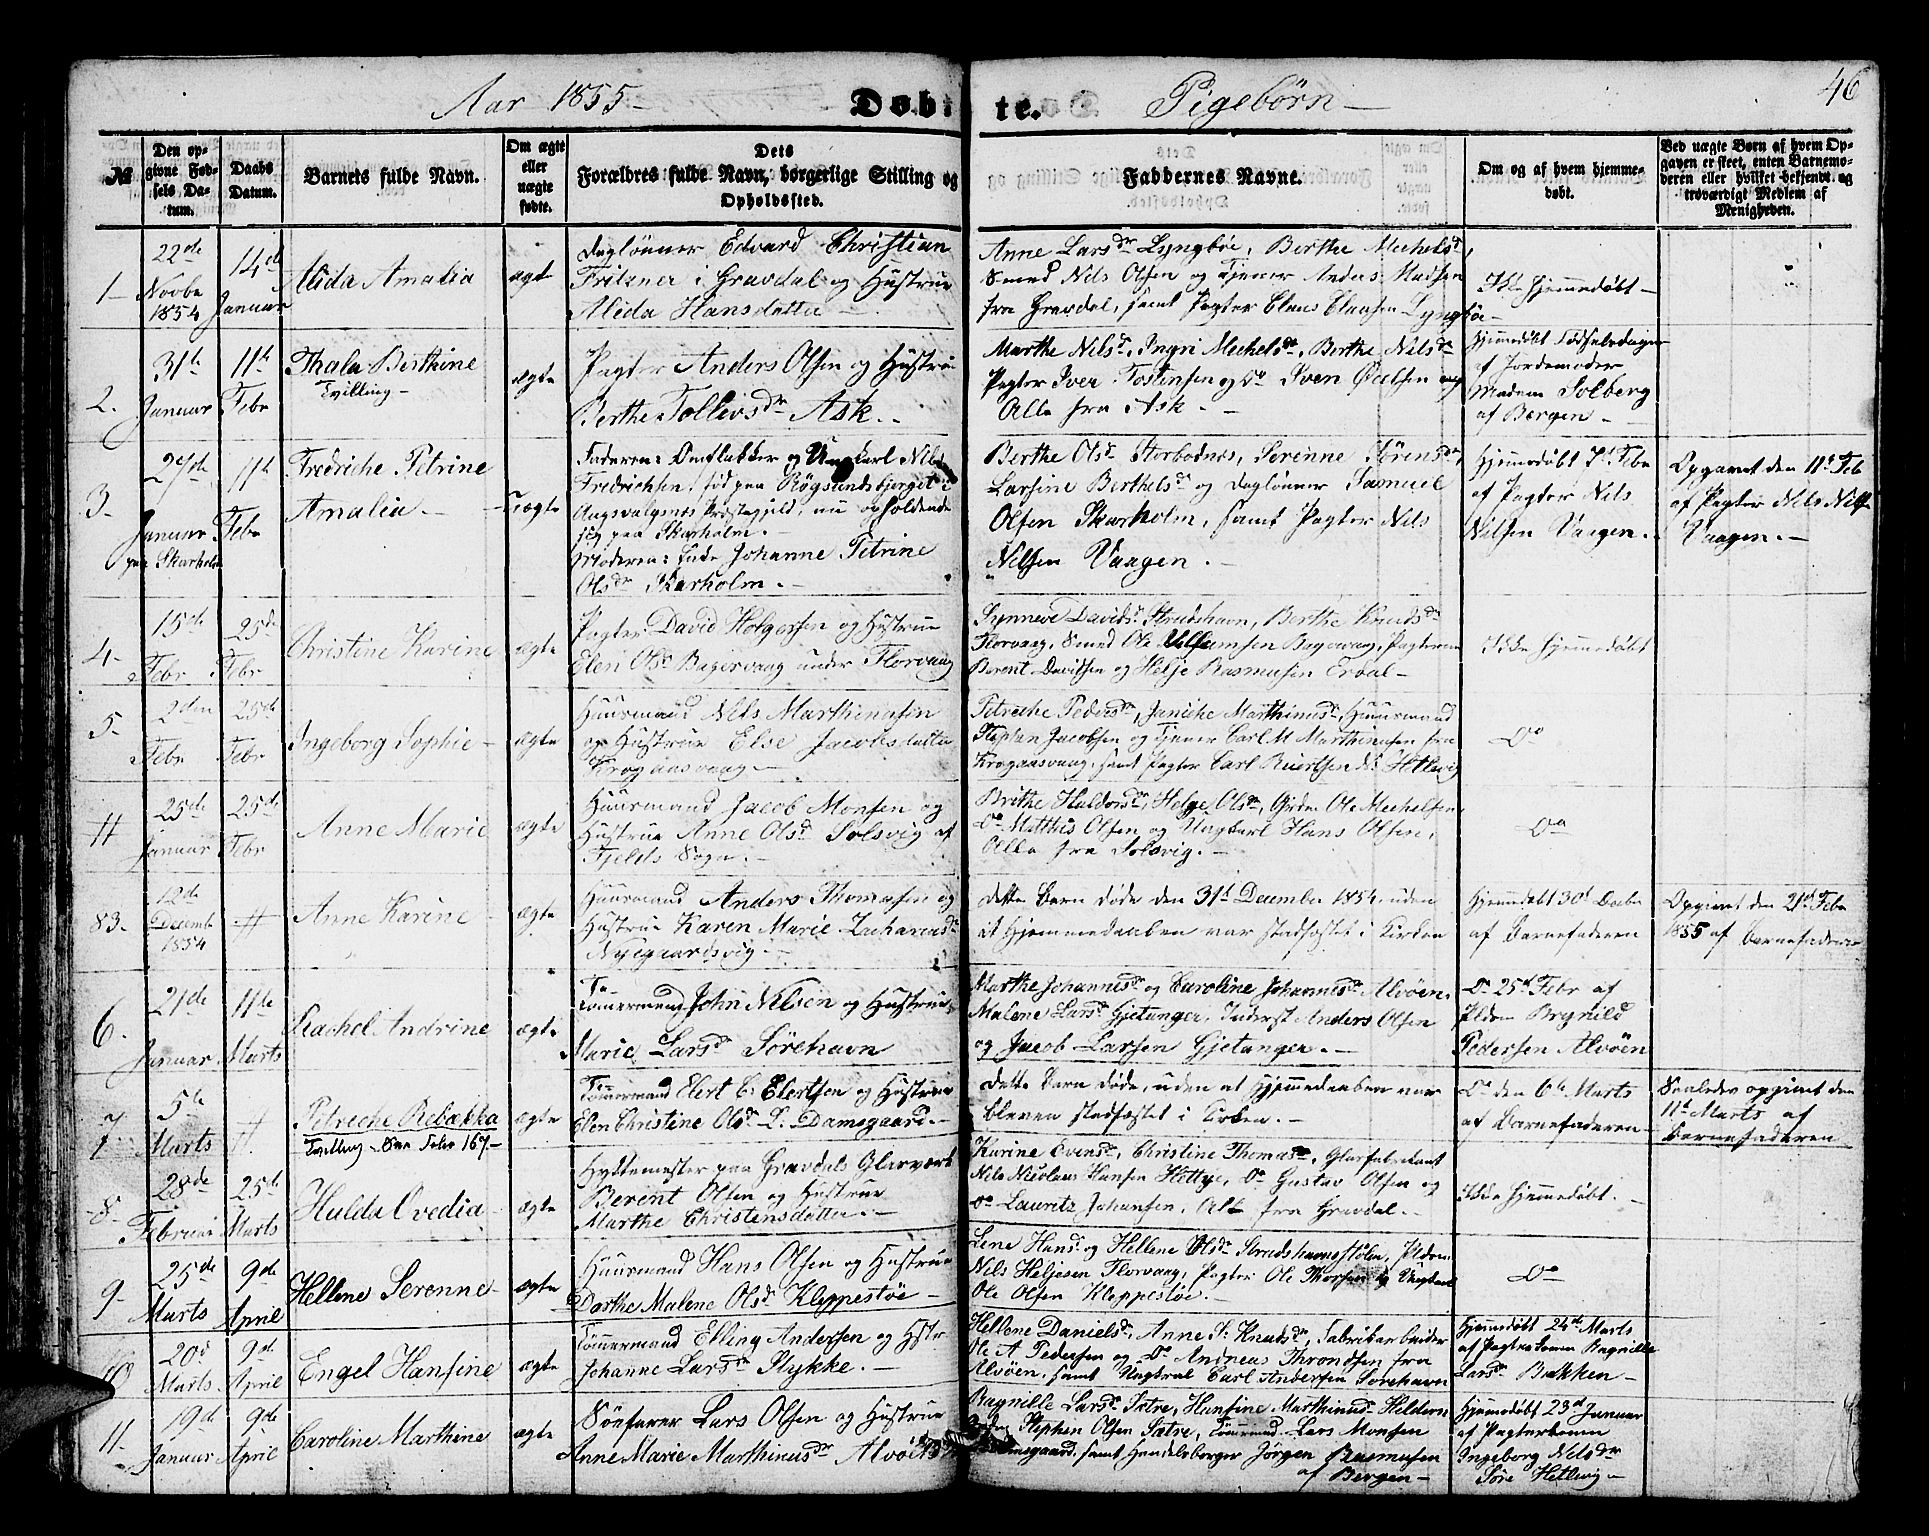 Aar 1855 Døbte. Pigebørn 46
№ Den opgivne Fødsels Datum. Daabs Datum. Barnets fulde Navn. Om ægte eller uægte fødte. Dets Forældres fulde Navn, borgerlige Stilling og Opholdssted. Faddernes Navne. Om og af hvem hjemmedøbt. Ved uægte Børn af hvem Opgaven er skeet, enten Barnemoderen eller hvilket bekjendt og troværdigt Medlem af Menigheden.
1 22de Novbr 1854 14de Januar Alida Amalia ægte
Daglønner Edvard Christian
Fritzner i Gravdal og Hustrue
Alida Hansdatter
Anne Larsdr Lyngbøe, Berthe Michelsd
Smed Nils Olsen og Tjener Anders Madsen
fra Gravdal, samt Pagter Claus Clausen Lyngbøe
Ikke hjemmedøbt
2. 31te Januar 11te Febr Thala Berthine Tvilling ægte
Pagter Anders Olsen og Hustrue
Berthe Tollevsdr Ask.
Marthe Nilsd, Ingri Michelsdr, Berthe Nilsdr
Pagter Iver Tostensen og Do Sven
Alle fra Ask.
Hjemmedøbt Fødselsdagen
af Jordemoder
Madam Solberg
af Bergen
3. 27de Januar paa Skarholm 11te Febr Fredriche Petrine Amalia. Uægte
Faderen: Omflakker og Ungkarl Nils
Fredrichsen, fød paa Røgsundsbjerget i
Augsvalgsnes Præstegjeld, nu opholdende
sig paa Skarholm.
Moderen: Enke Johanne Petrine
Olsdr Skarholm.
Berthe Olsd Storbodnes, Serenne Sørensdr,
Larsine Berthelsdr og Daglønner Samuel
Olsen Skarholm, samt Pagter Nils
Nilsen Vaagen.
Hjemmedøbt 7d Febr
af Pagter Nils
Nilsen Vaagen.
Opgivet den 11te Feb
af Pagter Nils Nilsen
Vaagen.
4 15de Febr 25de Febr Christine Karine ægte
Pagter David Holgersen og Hustrue
Elen Olsd Bagervaag under Florvaag
Synneve Davidsd Strudshavn, Berthe Knudsdr
Florvaag, Smed Ole Villumsen Bagervaag, Pagterne
Berent Davidsen og Helje Rasmusen Erdal
Ikke hjemmedøbt
5 2den Febr 25de Febr Ingeborg Sophie ægte
Huusmand Nils Marthinusen
og Hustrue Else Jacobsdatter
Krogaasvaag
Petriche Pedersdr, Janiche Marthinusd, Huusmand
Stephan Jacobsen og Tjener Carl M Marthinusen fra
Krogaasvaag, samt Pagter Carl Ruertsen N. Hetlevig
Do
11 25de Januar 25de Febr Anne Marie ægte
Huusmand Jacob Monsen og
Hustrue Anne Olsd Solsvig af
Fjelds Sogn.
Brithe Haldorsdr, Helge Olsdr, Girdm Ole Michelsen
Do Matthis Olsen og Ungkarl Hans Olsen,
Alle fra Solsvig.
Do
83. 12de Decemb 1854 Anne Karine ægte
Huusmand Anders Thomasen og
Hustrue Karen Marie Zachariasdr
Nygaardsvig
Dette Barn døde den 31te December 1854, uden
at Hjemmedaaben var stadfæstet i Kirken
Hjemmedøbt 30d Decbr
af Barnefaderen
Opgivet den 21de Febr
1855 af Barnefaderen
6. 21de Januar 11te Marts Rachel Andrine ægte
Tømmermand John Nilsen og Hustrue
Marie Larsd Sørehavn
Marthe Johannisdr og Caroline Johannisdr Alvøen,
Malene Larsd Gjetanger, Inderst Anders Olsen
og Jacob Larsen Gjetanger.
Do 25d Febr af
Pldm Brynild
Pedersen Alvøen
7 5te Marts Petriche Rebækka Tvilling ægte
Tømmermand Elert E. Elertsen og Hustrue
Elen Christine Olsd L. Damsgaard.
Dette Barn døde, uden at Hjemmedaaben var
bleven stadfæstet i Kirken.
Do den 6te Marts
af Barnefaderen
Saaledes opgivet den
11te Marts af
Barnefaderen
8 28de Februar 25de Marts Hulda Ovedia ægte
Hyttemester paa Gravdals Glasværk
Berent Olsen og Hustrue
Marthe Christensdatter.
Karine Evensd, Christine Thomasdr, Glasfabrikant
Nils Nicolaus Hansen Hettye, Do Gustav Olsen og
Do Laurits Johansen, Alle fra Gravdal.
Ikke hjemmedøbt.
9 25de Marts 9de April Hellene Serenne ægte
Huusmand Hans Olsen og Hustrue
Dorthe Malene Olsd Kleppestøe
Lene Hansd og Hellene Olsdr Strudshavnstølen, Pldm
Nils Heljesen Florvaag, Pagter Ole Thorsen og Ungkarl
Ole Olsen Kleppestøe.
Do
10 20d Marts 9de April Engel Hansine ægte
Tømmermand Elling Andersen og Hstr
Johanne Larsdr Stykke.
Hellene Danielsdr, Anne S. Knudsdr, Fabrikarbeider
Ole A Pedersen og Do Andreas Throndsen fra
Alvøen, samt Ungkral Carl Andersen Sørehavn
Hjemmedøbt 24d Marts
af Pagterkonen Ragnilde
Larsd Bakken
11. 19d Januar 9de April Caroline Marthine ægte
Søfarer Lars Olsen og Hustrue
Anne Marie Marthinusdr Alvøen
Ragnille Larsd Sætre, Hansine Marthinusd Heldern
Stephen Olsen Sætre, Tømmermd Lars Monsen
Damsgaard, samt Handelsborger Jørgen Rasmusen
af Bergen
Hjemmedøbt 23d Januar
af Pagterkonen
Ingeborg Nilsdr
Søre Hetlevig